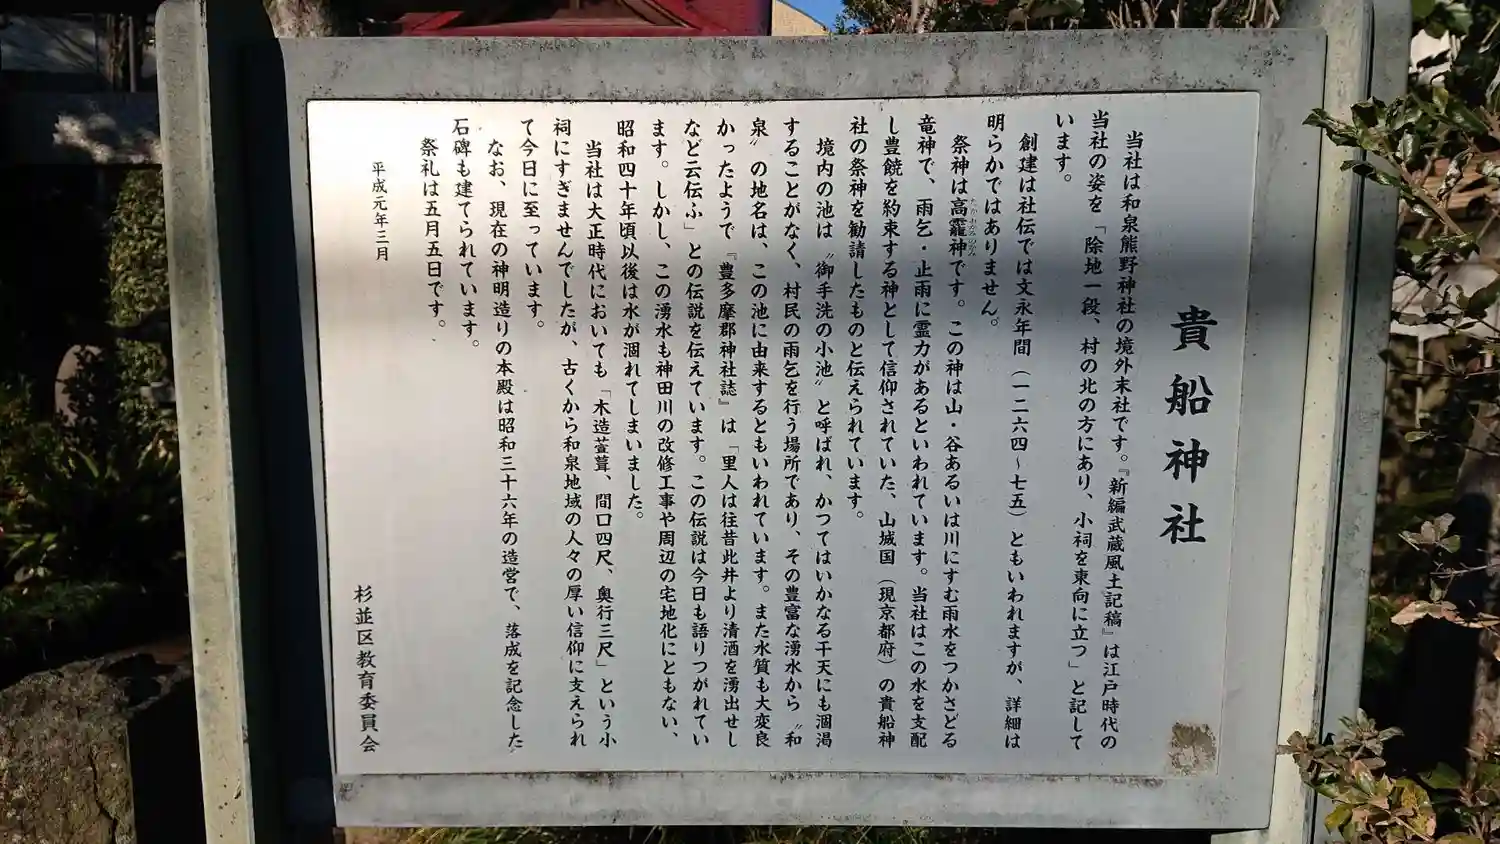 貴船神社
当社は和泉熊野神社の境外末社です。『新編武蔵風土記稿』は江戸時代の
当社の姿を「除地一段、村の北の方にあり、小祠を東向に立つ」と記して
います。
創建は社伝では文永年間（一二六四～七五）ともいわれますが、詳細は
明らかではありません。
祭神は高龗神です。この神は山・谷あるいは川にすむ雨水をつかさどる
たかおかみのかみ
竜神で、雨乞・止雨に霊力があるといわれています。当社はこの水を支配
し豊饒を約束する神として信仰されていた、山城国（現京都府）の貴船神
社の祭神を勧請したものと伝えられています。
境内の池は〝御手洗の小池〟と呼ばれ、かつてはいかなる干天にも涸渇
することがなく、村民の雨乞を行う場所であり、その豊富な湧水から〝和
泉〟の地名は、この池に由来するともいわれています。また水質も大変良
かったようで『豊多摩郡神社誌』は「里人は往昔此井より清酒を湧出せし
など云伝ふ」との伝説を伝えています。この伝説は今日も語りつがれてい
ます。しかし、この湧水も神田川の改修工事や周辺の宅地化にともない、
昭和四十年頃以後は水が涸れてしまいました。
当社は大正時代においても「木造萱葺、間口四尺、奥行三尺」という小
祠にすぎませんでしたが、古くから和泉地域の人々の厚い信仰に支えられ
て今日に至っています。
なお、現在の神明造りの本殿は昭和三十六年の造営で、落成を記念した
石碑も建てられています。
祭礼は五月五日です。
平成元年三月
杉並区教育委員会